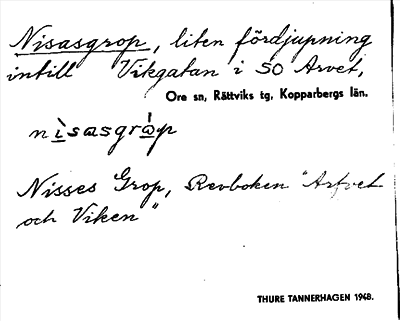 Nisasgrop, liten fördjupning
intill Vikgatan i SO Arvet,
Ore sn, Rättviks tg, Kopparbergs län.
nìsasgrȧ̀p
Nisses Grop, Revboken "Artvet
och Viken"
THURE TANNERHAGEN 1948.